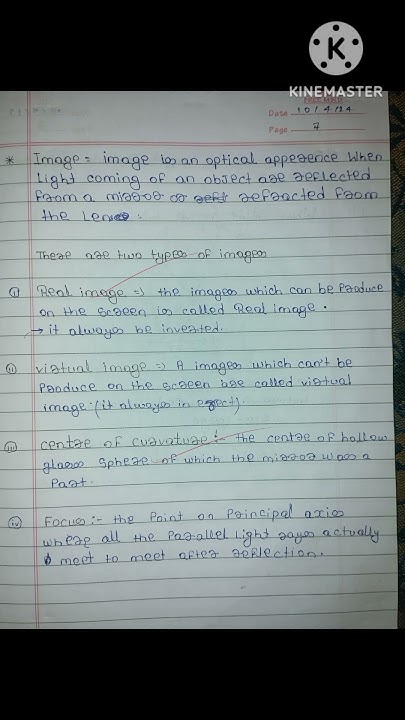 KINEMASTER
Date 10/4/24
Page 7
* Image = image is an optical apperence When
Light coming of an object are reflected
from a mirror or refracted from
the Lens.
There are two types of images
(i) Real image => the images which can be Produce
on the screen is called Real image.
→ it always be inverted.
(ii) virtual image => A images which can't be
Produce on the screen are called virtual
image. (it always in erect).
(iii) centre of curvature :- the centre of hollow
glass sphere of which the mirror was a
Part.
(iv) Focus :- the Point on Principal axis
where all the Parallel Light rays actually
meet to meet after reflection.